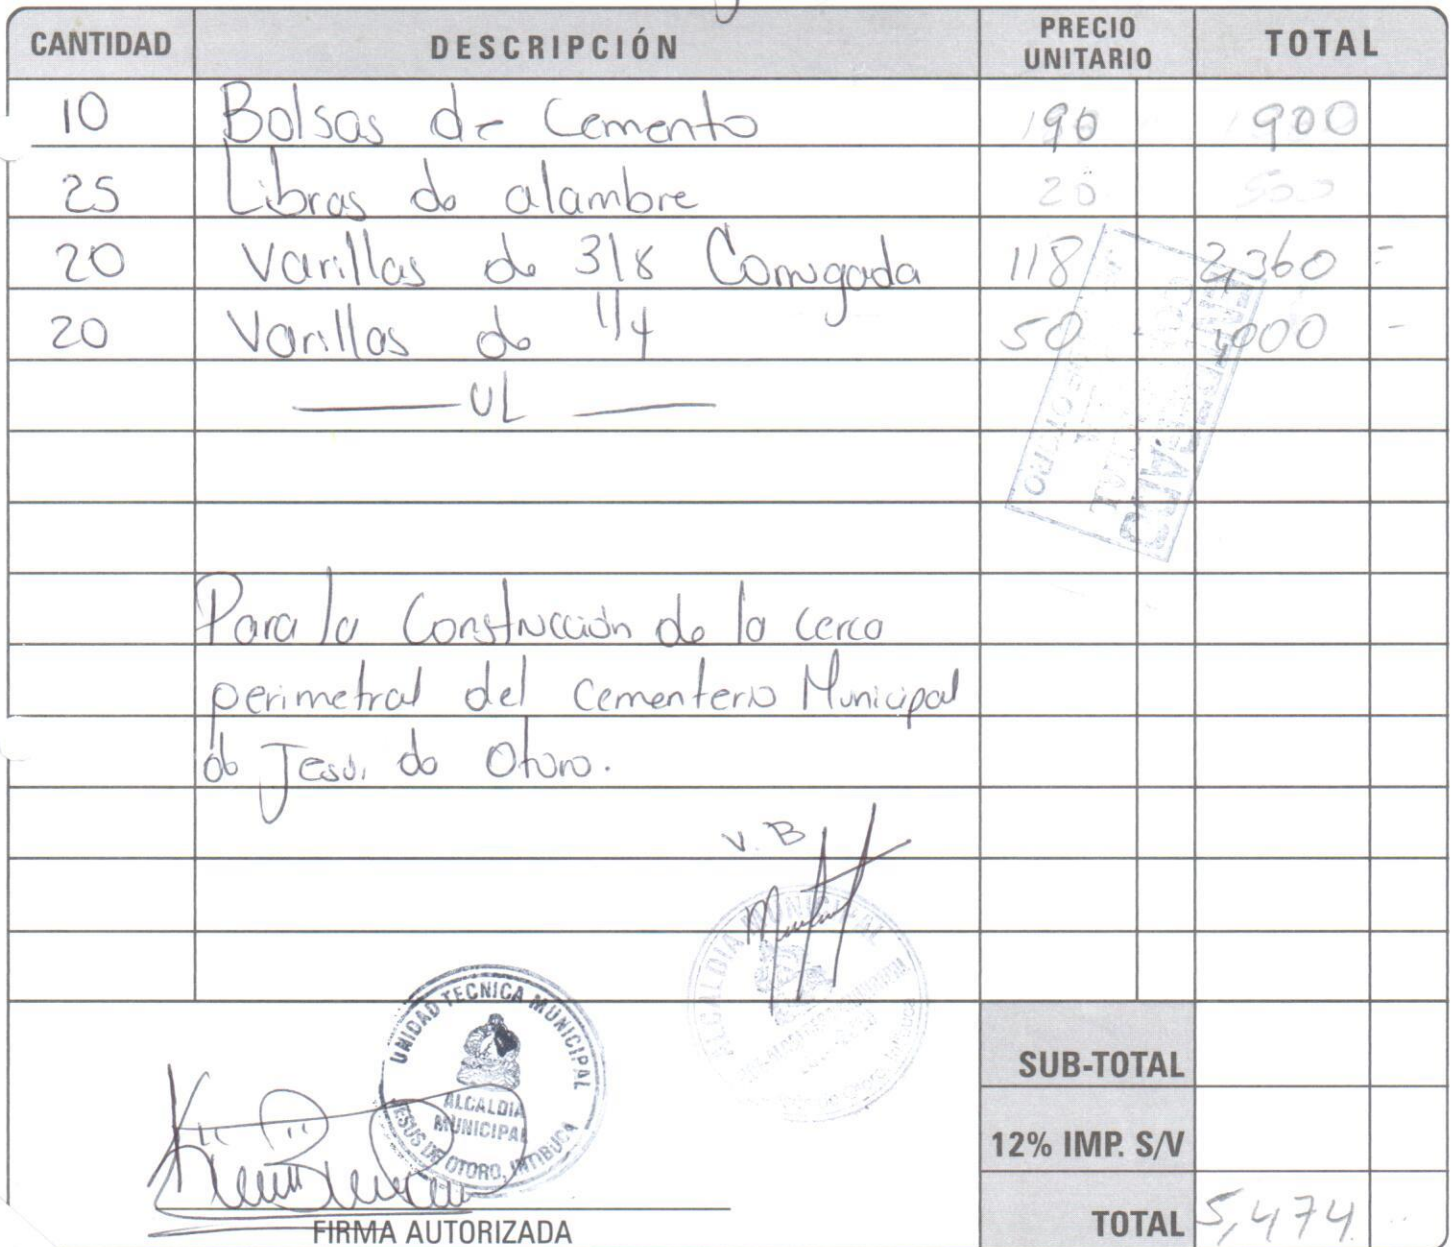 CANTIDAD DESCRIPCIÓN PRECIO UNITARIO TOTAL
10 Bolsas de Cemento 190 1900
25 Libras de alambre 20 500
20 Varillas de 3/8 Corrugada 118 2,360 =
20 Varillas de 1/4 50 - 1,000 -
UL
Para la Construcción de la cerca
perimetral del cementerio Municipal
de Jesus de Otoro.
V.B
ALCALDIA MUNICIPAL
UNIDAD TECNICA MUNICIPAL
ALCALDIA
MUNICIPAL
JESUS DE OTORO, INTIBUCA
SUB-TOTAL
12% IMP. S/V
TOTAL 5,474
FIRMA AUTORIZADA